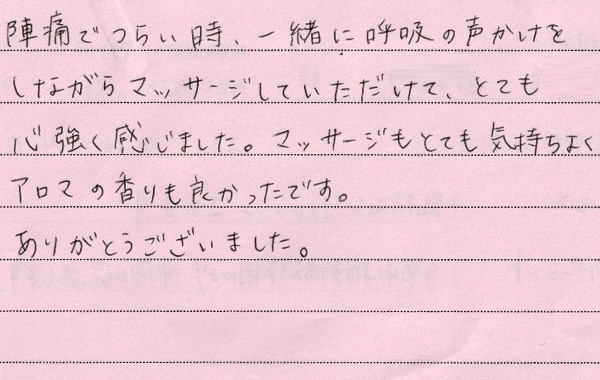 陣痛でつらい時、一緒に呼吸の声かけを
しながらマッサージしていただけて、とても
心強く感じました。マッサージもとても気持ちよく
アロマの香りも良かったです。
ありがとうございました。